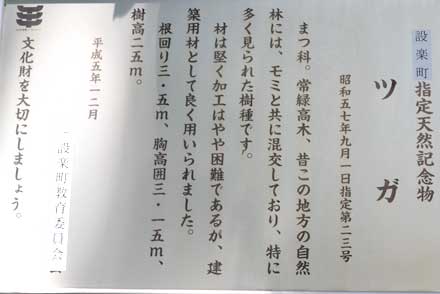 設楽町指定天然記念物
ツガ
昭和五七年九月一日指定第二三号
まつ科。常緑高木、昔この地方の自然
林には、モミと共に混交しており、特に
多く見られた樹種です。
材は堅く加工はやや困難であるが、建
築用材として良く用いられました。
根回り三・五m、胸高囲三・一五m、
樹高二五m。
平成五年一二月
設楽町教育委員会
文化財を大切にしましょう。